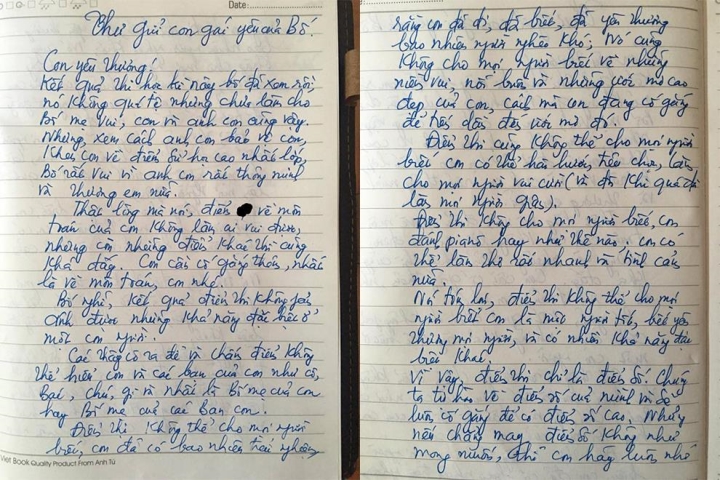 Date:
Thư gửi con gái yêu của Bố.
Con yêu thương!
Kết quả thi học kì này bố đã xem rồi,
nó không quá tệ nhưng chưa làm cho
Bố mẹ vui, con và anh con cũng vậy.
Nhưng, xem cách anh con bảo vệ con,
khoe con về điểm sử học cao nhất lớp,
Bố rất vui vì anh con rất thông minh
và thương em nữa.
Thật lòng mà nói, điểm về môn
toán của con không làm ai vui được,
nhưng con những điểm khác thì cũng
khá đấy. Con cần cố gắng thêm, nhất
là về môn toán, con nhé.
Bố nghĩ, kết quả điểm thi không phản
ánh được những khả năng đặc biệt ở
mỗi con người.
Các thầy cô ra đề và chấm điểm không
thể hiểu con và các bạn của con như cô,
bác, chú, gì và nhất là Bố mẹ của con
hay Bố mẹ của các bạn con.
Điểm thi không thể cho mọi người
biết, con đã có bao nhiêu trải nghiệm,
Viet Book Quality Product From Anh Tú
rằng con đã đi, đã biết, đã yêu thương
bao nhiêu người nghèo khó; Nó cũng
không cho mọi người biết về những
niềm vui, nỗi buồn và những ước mơ cao
đẹp của con, cách mà con đang cố gắng
để tiến dần đến ước mơ đó.
Điểm thi cũng không thể cho mọi người
biết con có thể hài hước, trêu chọc, làm
cho mọi người vui cười (và đôi khi quá đà
làm mọi người giận).
Điểm thi không cho mọi người biết, con
đánh piano hay như thế nào. con có
thể làm thơ rất nhanh và tình cảm
nữa.
Nói tóm lại, điểm thi không thể cho mọi
người biết con là một người tốt, biết yêu
thương mọi người, và có nhiều khả năng đặc
biệt khác.
Vì vậy, điểm thi chỉ là điểm số. Chúng
ta tự hào về điểm số của mình và sẽ
luôn cố gắng để có điểm số cao. Nhưng
nếu chẳng may điểm số không như
mong muốn, thì con hãy luôn nhớ